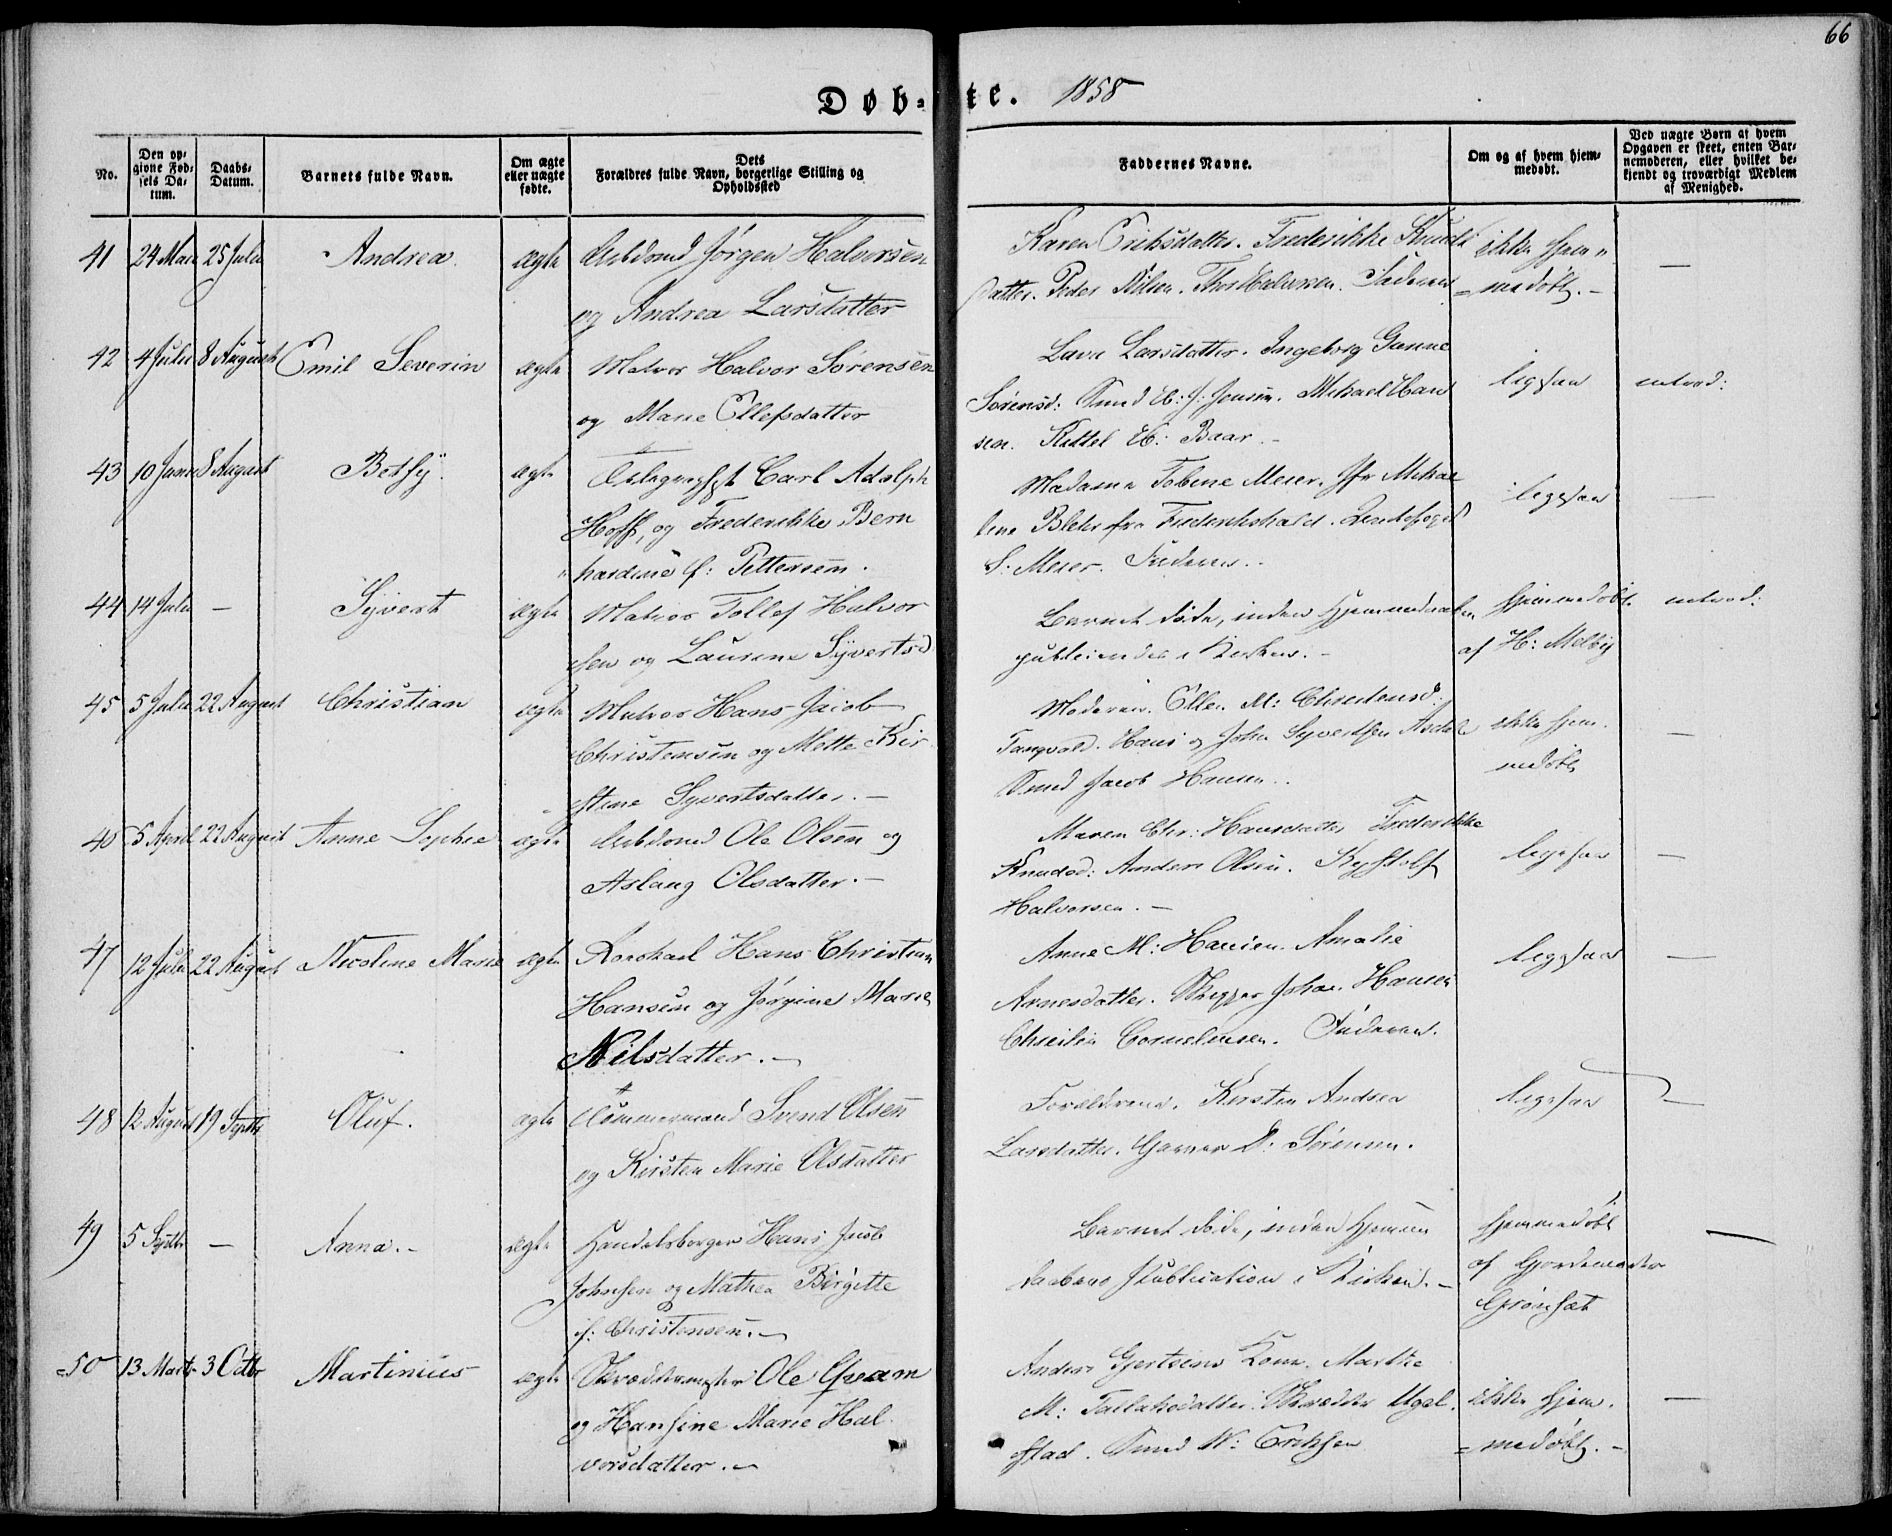 66
Døb-te. 1858
No.
Den opgivne Fødsels Datum.
Daabs-Datum.
Barnets fulde Navn.
Om ægte eller uægte fødte.
Dets Forældres fulde Navn, borgerlige Stilling og Opholdssted
Faddernes Navne.
Om og af hvem hjemmedøbt.
Ved uægte Børn af hvem Opgaven er skeet, enten Barnemoderen, eller hvilket bekjendt og troværdigt Medlem af Menighed.
41 24 Mai 25 Juli Andrea ægte Arbdsmd Jørgen Halvorsen
og Andrea Larsdatter
Karen Eriksdatter. Frederikke Knuds
datter. Peder Nilsen. Thor Halvorsen. Faderen
ikke hjem-
medøbt. —
42 4 Juli 8 August Emil Severin ægte Matros Halvor Sørensen
og Marie Ellefsdatter
Lava Larsdatter. Ingeborg Gunne
Sørensd: Smed J: Jensen. Mikael Han
sen. Kittel Baar. —
ligesaa
43 10 Juni 8 August Betsy. ægte Telegraphist Carl Adolph
Hoff, og Frederikke Bern
hardine f: Pettersen.
Madame Tobine Meier. Jfr Mikae
line Blehr fra Frederikshald.
S. Meier. Faderen.
ligesaa —
44 14 Juli — Syvert ægte Matros Tollef Halvor
sen og Laurine Syvertsd
Barnet døde, inden Hjemmedaaben
publiceredes i Kirken. —
hjemmedøbt
af H: Melbÿ
45 5 Juli 22 August Christian ægte Matros Hans Jacob
Christensen og Mette Kir
stine Syvertsdatter. —
Moderen. Ellen M: Christensd:
Tangvald. Hans og John Syvertsen
Smed Jacob Hansen.
ikke hjem-
medøbt —
46 5 April 22 August Anne Sophie ægte Arbdsmd Ole Olsen og
Aslaug Olsdatter. —
Maren Chr: Hansdatter Frederikke
Knudsd: Anders Olsen.
Halvorsen. —
ligesaa —
47 12 Juli 22 August Nicoline Marie ægte Hans Christian
Hansen og Jørgine Marie
Nilsdatter. —
Anne M: Hansen. Amalie
Arnesdatter. Skipper Johan Hansen
Corneliusen. Faderen.
ligesaa —
48 12 August 19 Septbr Oluf. ægte Tømmermand Svend Olsen
og Kirsten Marie Olsdatter
Forældrene. Kirsten Andrea
Larsdatter. Garver D: Sørensen.
ligesaa
49 5 Septbr — Anna. — ægte Handelsborger Hans Jacob
Johnsen og Mathea Birgitte
f: Christensen. —
Barnet døde, inden Hjemme
daabens Publication i Kirken. —
hjemmedøbt
af Gjordemoder
Grønsæt
50 13 Marts 3 Octbr Martinius ægte Skræddermester Ole Qvam
og Hansine Marie Hal
vorsdatter. —
Anders Gjertsens Kone. Marthe
M: Tallaksdatter. Skrædder Ugel
stad. Smed N: Eriksen
ikke hjem-
medøbt. —